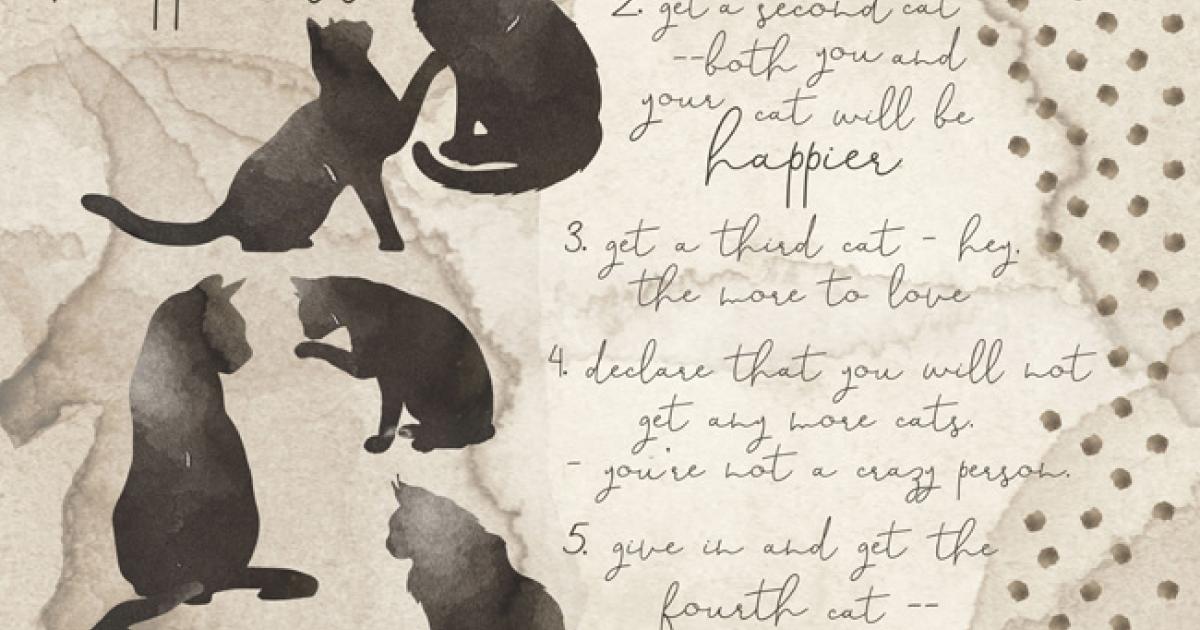 2. get a second cat
--both you and
your cat will be
happier
3. get a third cat - hey.
the more to love
4. declare that you will not
get any more cats.
- you're not a crazy person.
5. give in and get the
fourth cat --